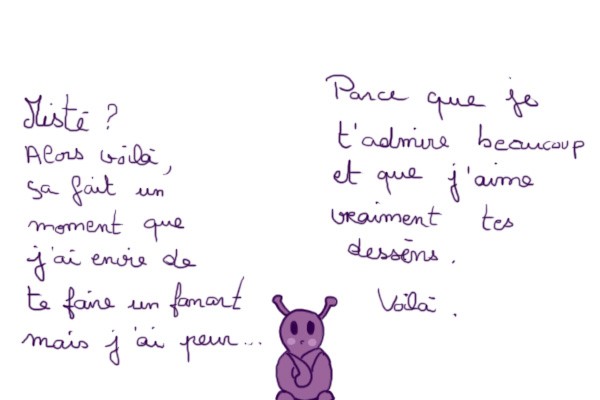 Misté ?
Alors voilà,
ça fait un
moment que
j'ai envie de
te faire un fanart
mais j'ai peur...
Parce que je
t'admire beaucoup
et que j'aime
vraiment tes
dessins.
Voilà.